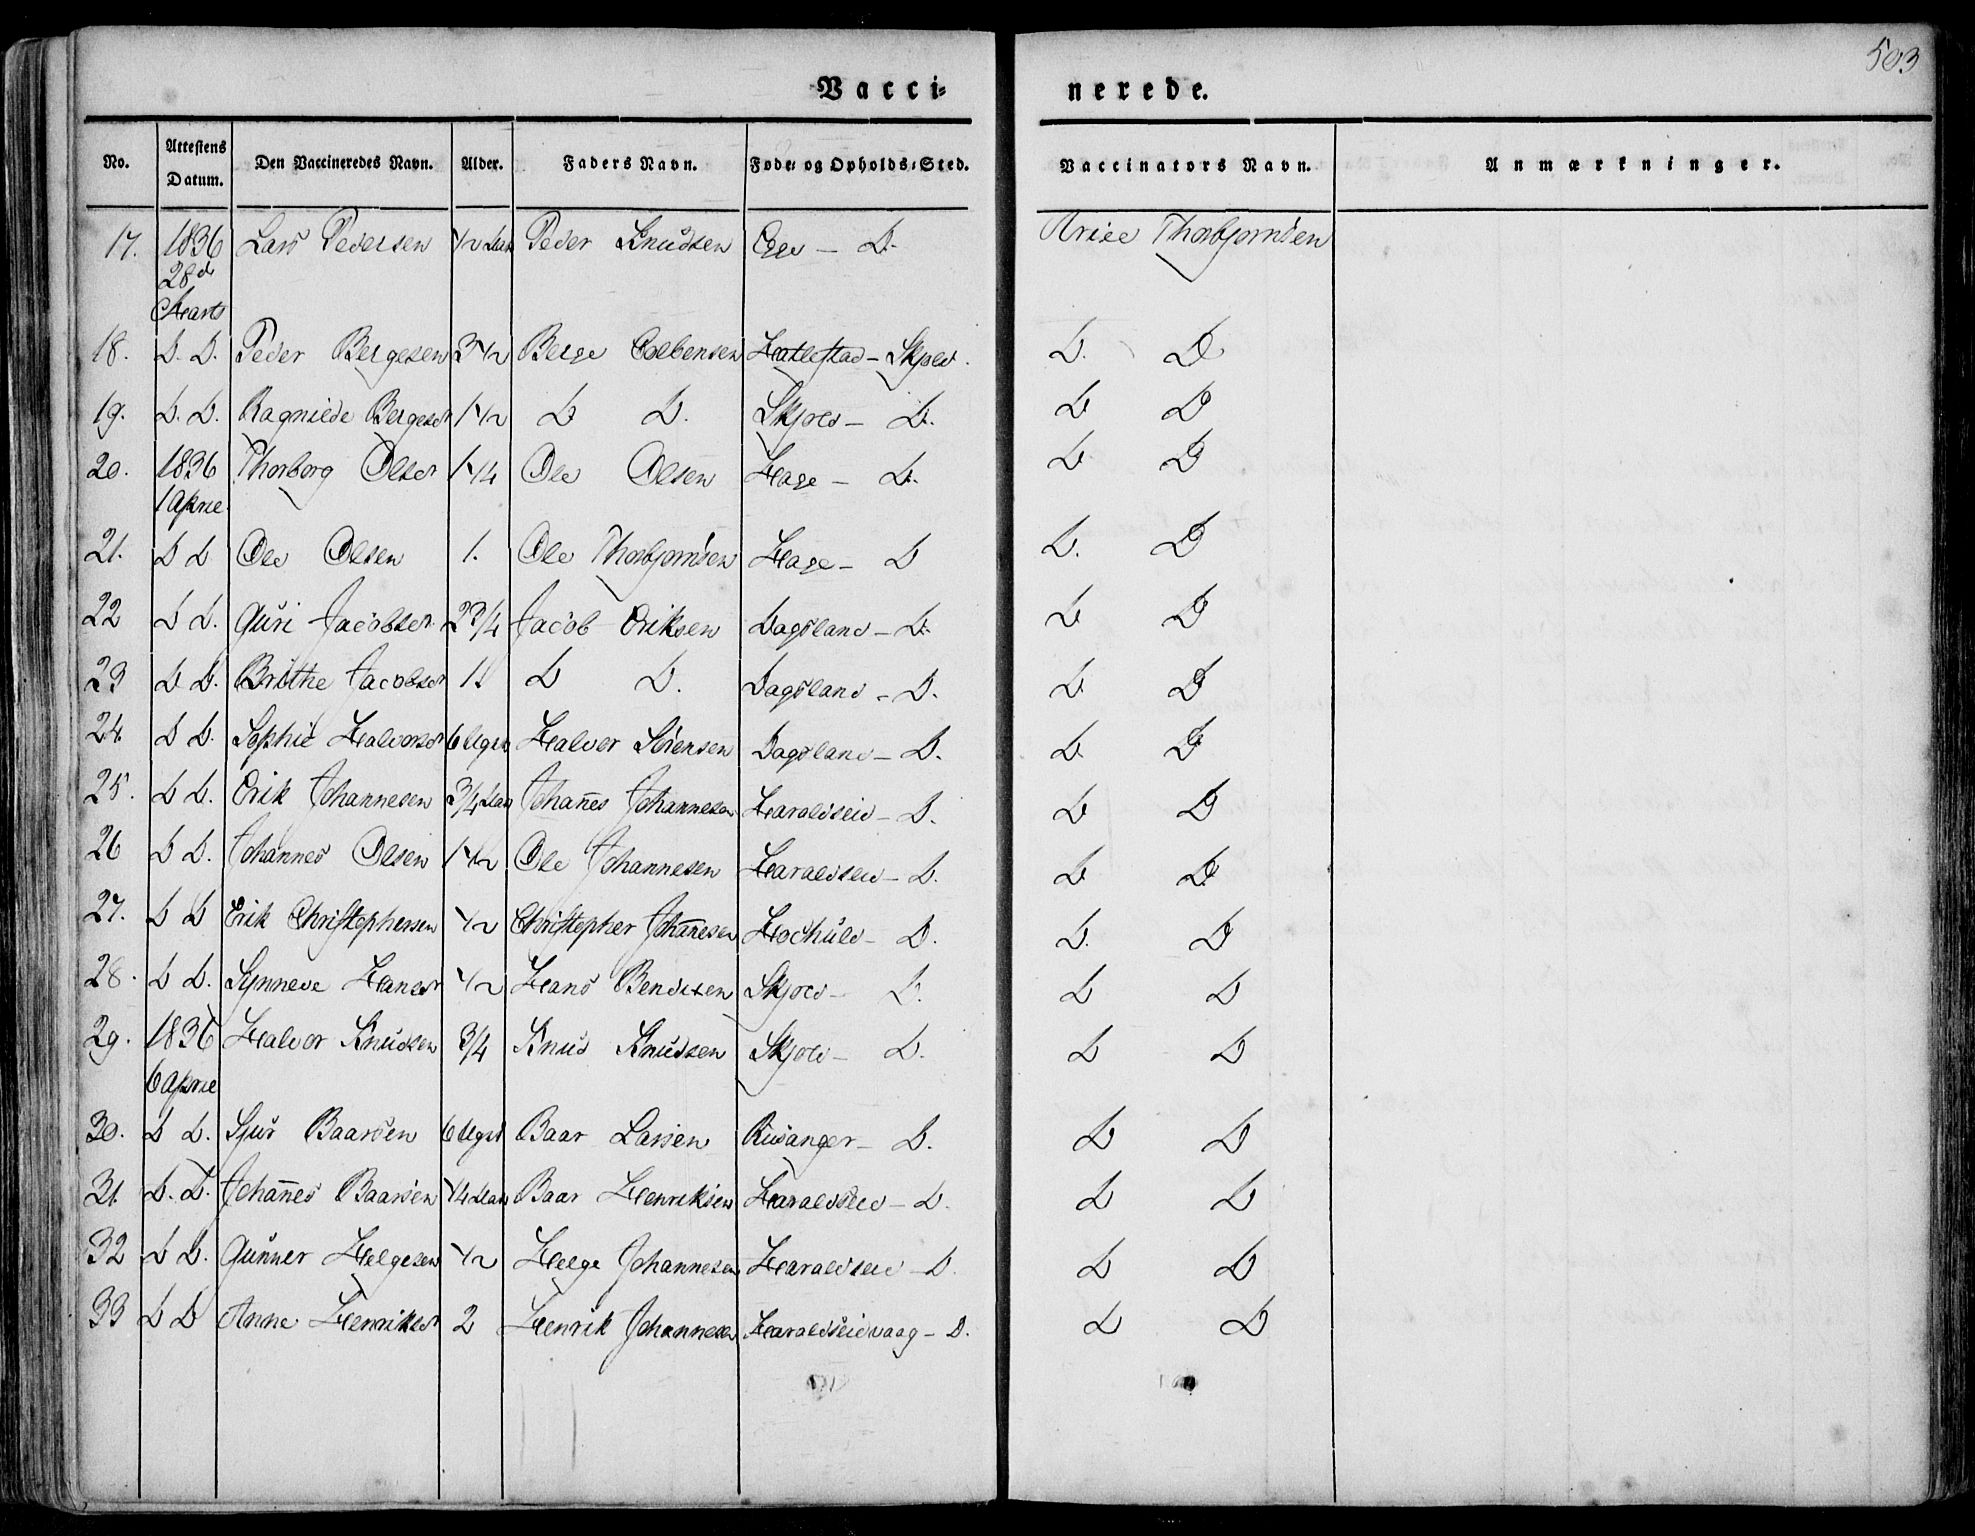 503
Vacci- nerede.
No. Attestens Datum. Den Vaccineredes Navn. Alder. Faders Navn. Føde- og Opholds-Sted. Vaccinators Navn. Anmærkninger.
17. 1836 Lars Pedersen 1/2 Peder Knudsen Ege - D. Thorbjørnsen
28de
Marts
18. D. D. Peder Bergesen 3 1/2 Berge Colbensen Hatlestad - Skjold. D. D
19. D. D. Ragnilde Bergesdr 1 1/2 D D. Skjold - D. D D
20. 1836 Thorborg Olsdr 1 1/4 Ole Olsen Hage - D. D D
1 April
21. D D Ole Olsen 1. Ole Thorbjørnsen Hage - D D. D
22 D D. Guri Jacobsdr 2 3/4 Jacob Eriksen Dagsland - D. D D
23 D D. Brithe Jacobsdr 1. D D. Dagsland - D. D D
24. D D. Sophie Halvorsdr 6 Uger Halvor Sørensen Dagsland - D. D D
25. D D. Erik Johannesen 3/4 Aar Johan̄es Johannesen Haraldseid - D. D D
26 D D. Johannes Olsen 1 1/2 Ole Johannesen Haraldseid - D. D D
27. D D Erik Christophersen 1/2 Christopher Johan̄esen - D. D. D
28. D D. Synneve Hansdr 1/2 Hans Bendixen Skjold - D. D D
29. 1836 Halvor Knudsen 3/4 Knud Knudsen Skjold - D. D D
6 April
30. D D. Sjur Baardsen 6 Uger Baar Larsen Risanger - D. D D
31. D. D. Johan̄es Baarsen 1/4 Aar Baar Henriksen Haraldseid - D. D D
32 D D. Gunner Helgesen 1/2 Helge Johannesen Haraldseid - D. D D
33 D D Anne Henriksdr 2 Henrik Johannesen Haraldseidvaag - D. D D